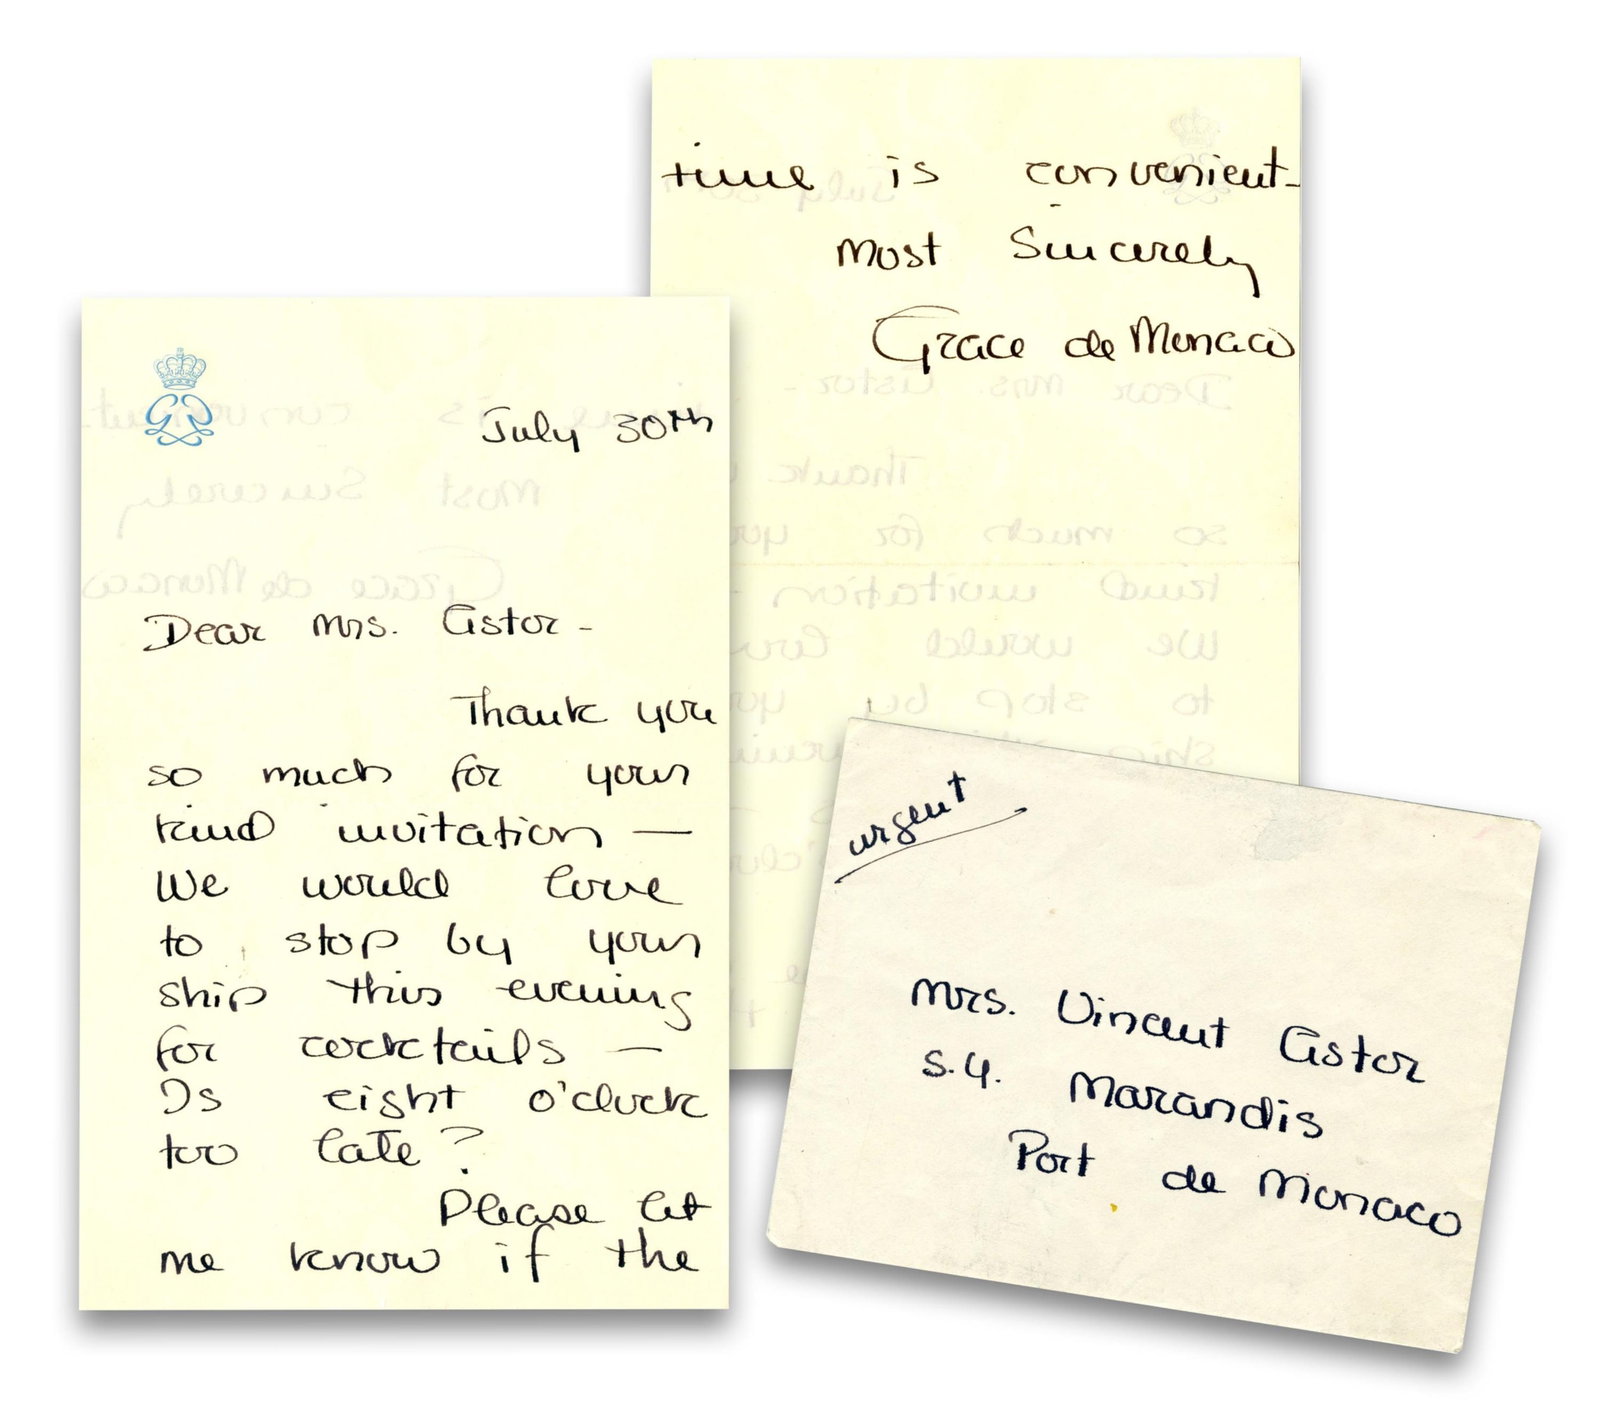 July 30th
Dear Mrs. Astor -
Thank you
so much for your
kind invitation —
We would love
to stop by your
ship this evening
for cocktails —
Is eight o'clock
too late?
Please let
me know if the
time is convenient -
Most Sincerely
Grace de Monaco
urgent
Mrs. Vincent Astor
S.Y. Marandis
Port de Monaco